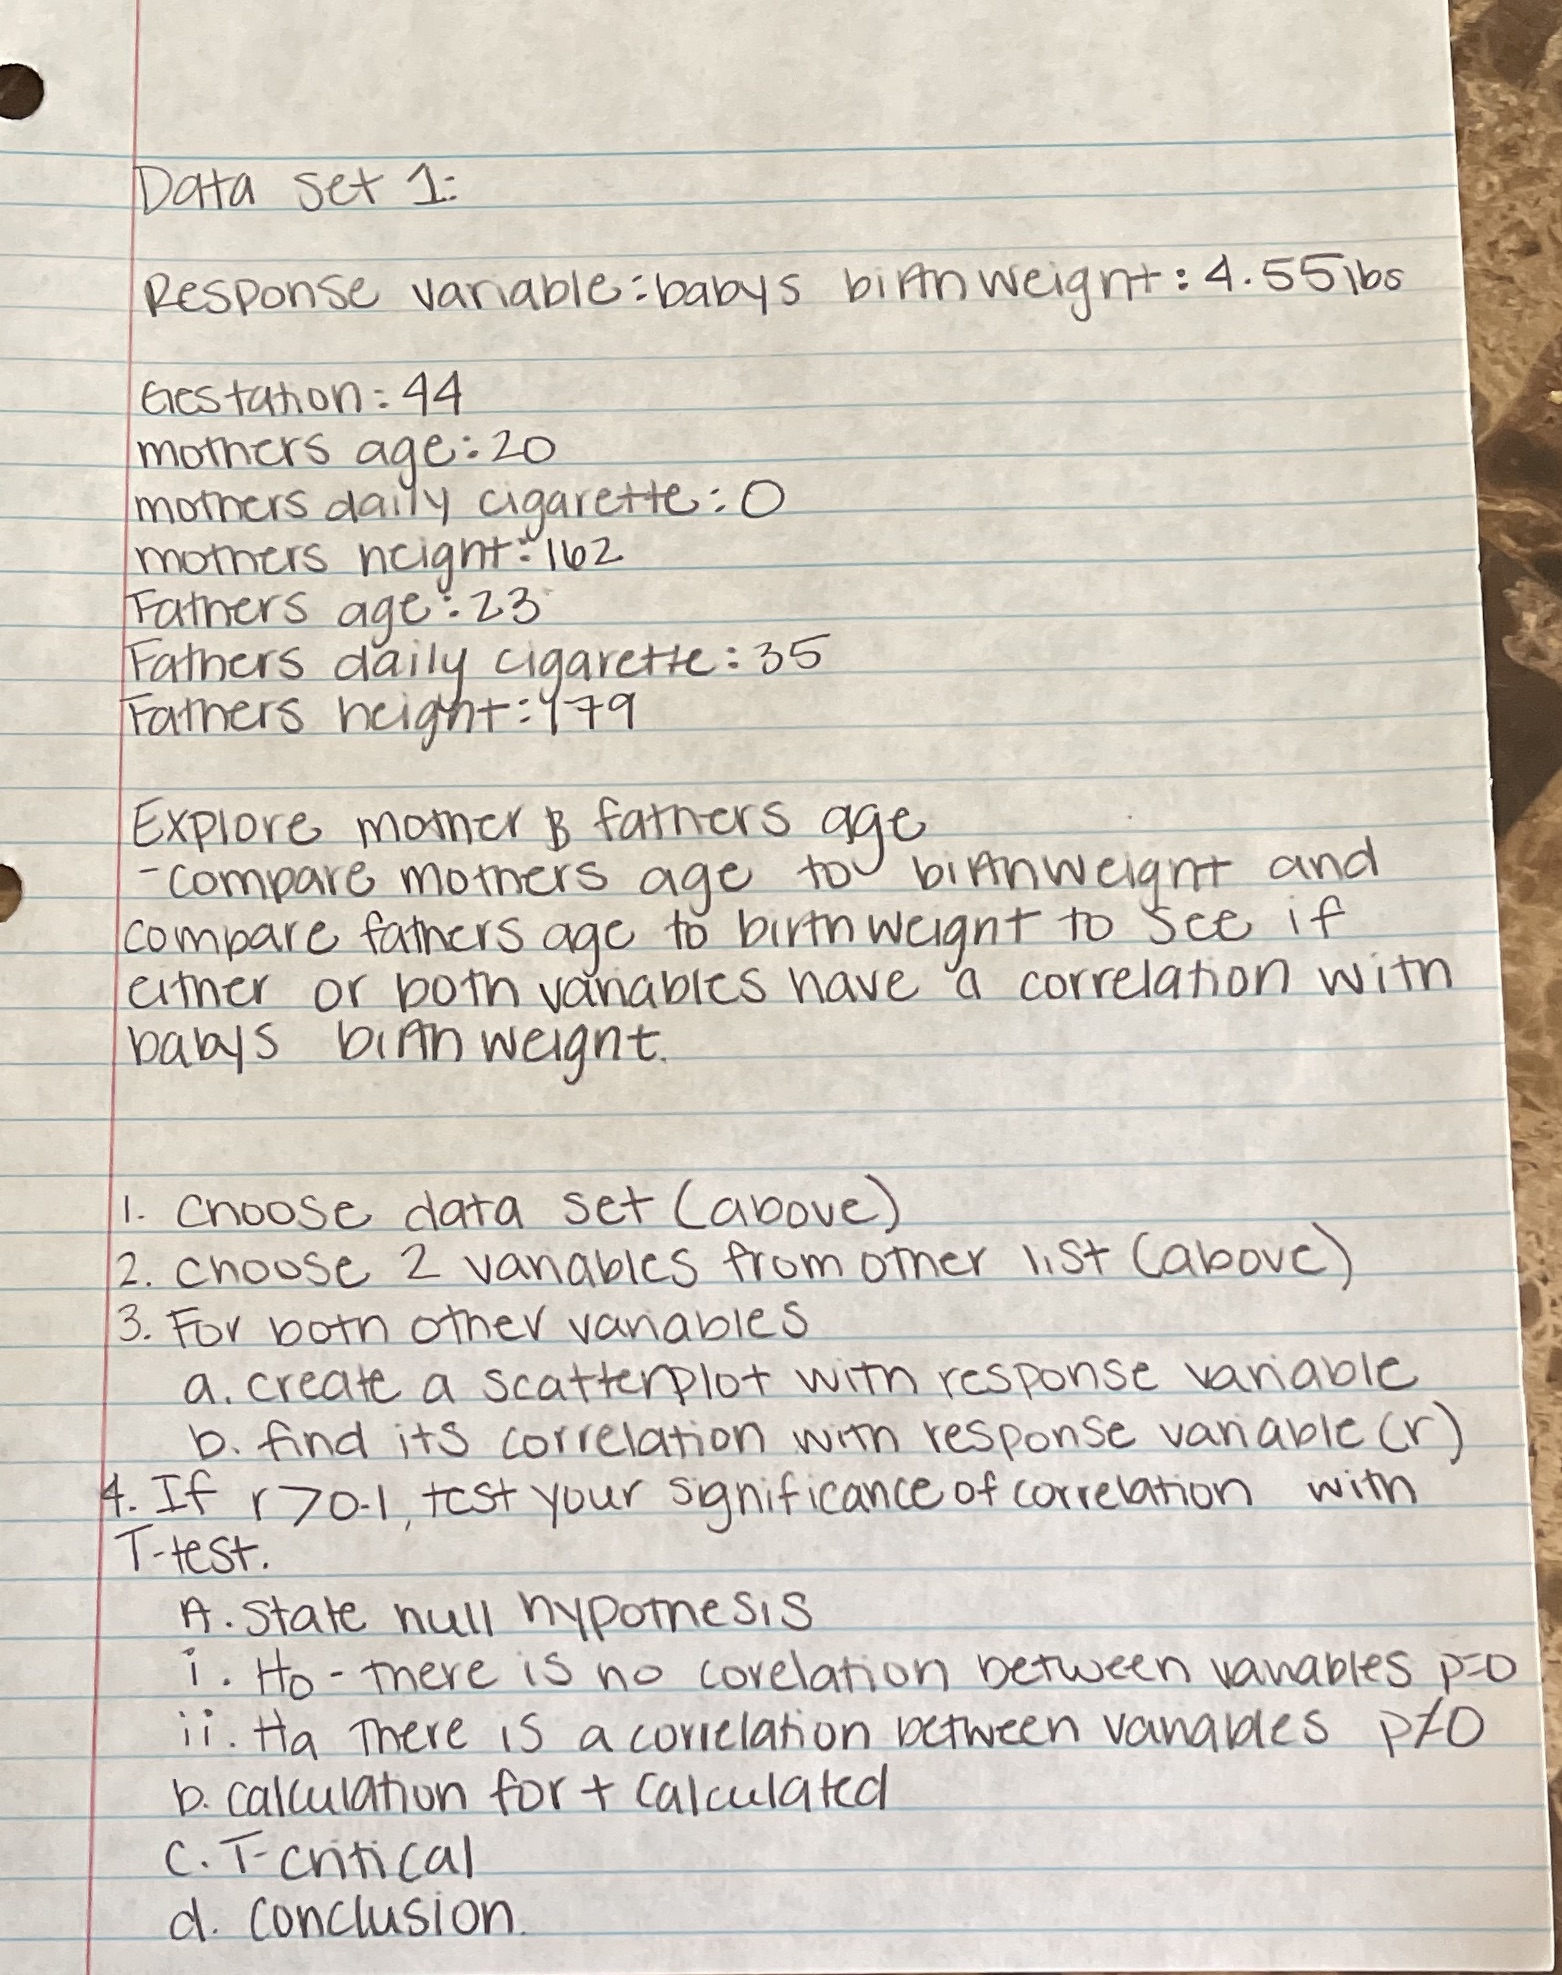 Data set 1:
Response variable: babys birthweight: 4.55 lbs
Gestation: 44
mothers age: 20
mothers daily cigarette: 0
mothers height: 162
Fathers age: 23
Fathers daily cigarette: 35
Fathers height: 179
Explore mother & fathers age
- compare mothers age to birthweight and
compare fathers age to birthweight to see if
either or both variables have a correlation with
babys birthweight.
1. Choose data set (above)
2. choose 2 variables from other list (above)
3. For both other variables
a. create a scatterplot with response variable
b. find its correlation with response variable (r)
4. If r > 0.1, test your significance of correlation with
T-test.
A. State null hypothesis
i. Ho - there is no corelation between variables p=0
ii. Ha There is a correlation between variables p≠0
b. calculation for t calculated
C. T-critical
d. conclusion.